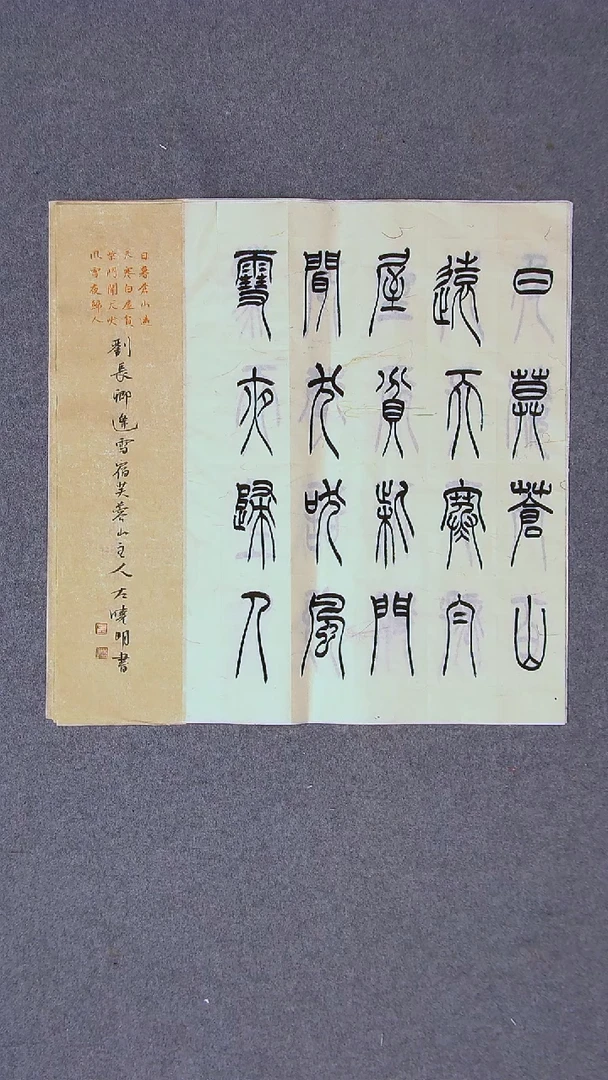 日暮蒼山
遠天寒白
屋貧柴門
聞犬吠風
雪夜歸人
日暮蒼山遠
天寒白屋貧
柴門聞犬吠
風雪夜歸人
劉長卿逢雪宿芙蓉山主人左曉明書